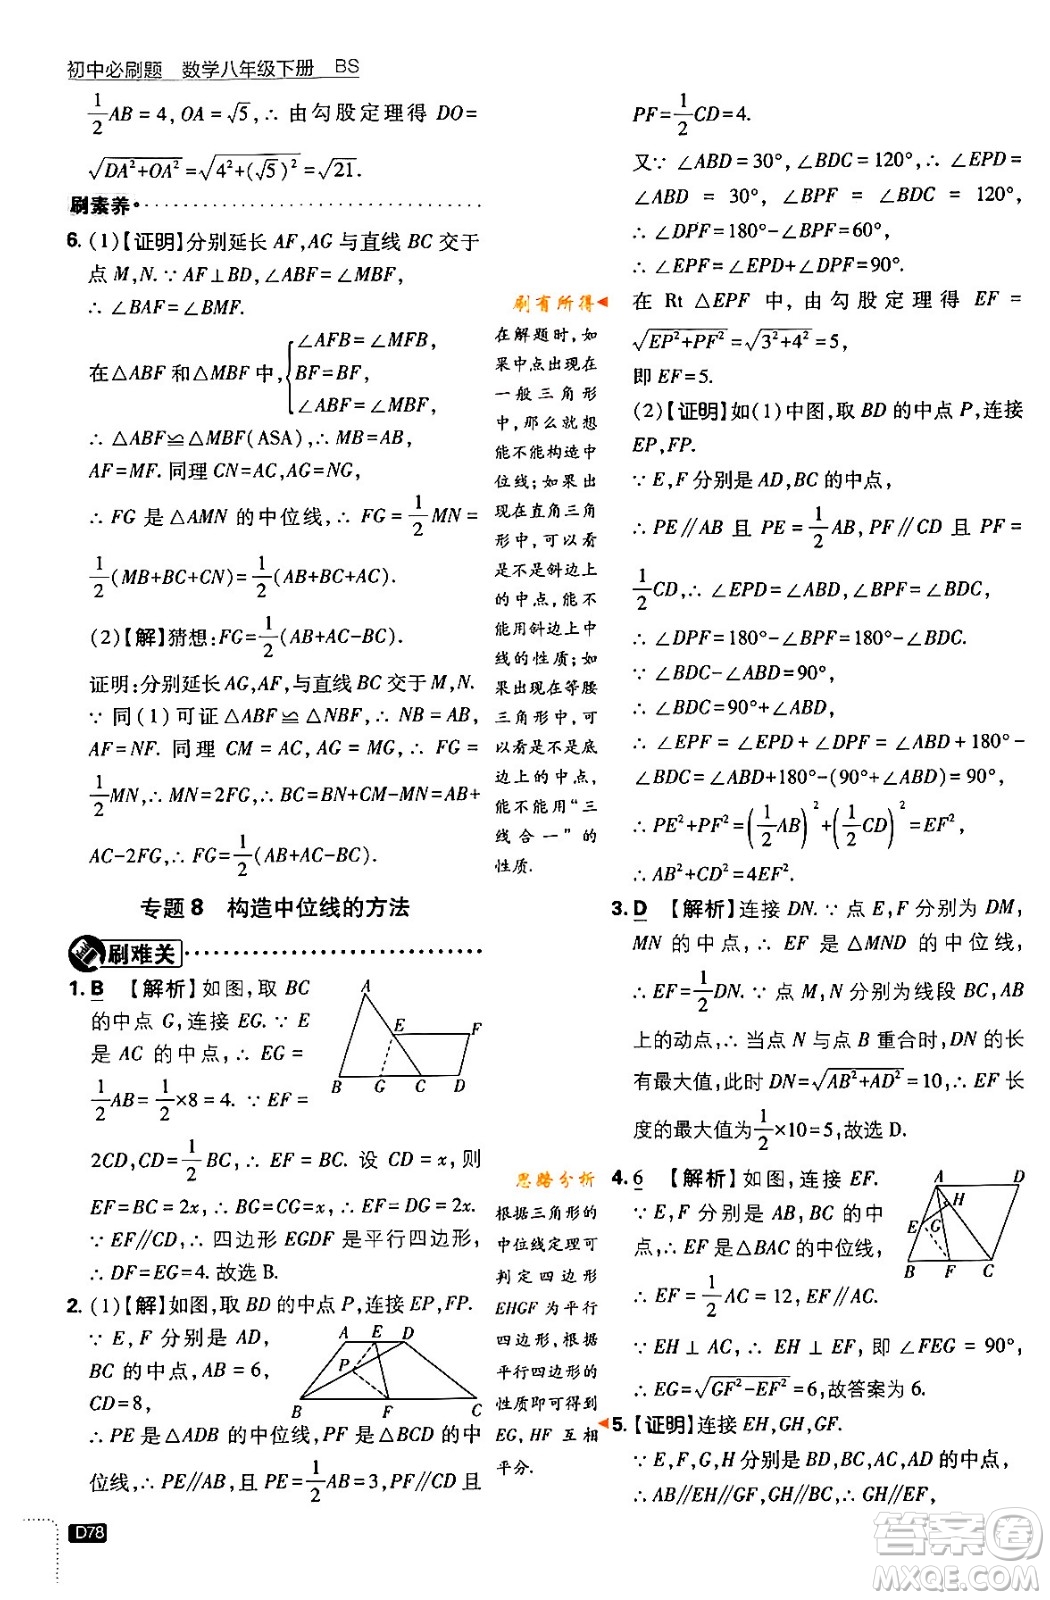 初中必刷题 数学八年级下册 BS
1/2 AB = 4, OA = √5, ∴ 由勾股定理得 DO =
√(DA²+OA²) = √(4²+(√5)²) = √21.
刷素养
6. (1)【证明】分别延长 AF, AG 与直线 BC 交于
点 M, N. ∵ AF⊥BD, ∴ ∠ABF = ∠MBF,
∴ ∠BAF = ∠BMF.
在△ABF 和△MBF 中, { ∠AFB = ∠MFB,
BF = BF,
∠ABF = ∠MBF,
∴ △ABF≌△MBF(ASA), ∴ MB = AB,
AF = MF. 同理 CN = AC, AG = NG,
∴ FG 是△AMN 的中位线, ∴ FG = 1/2 MN =
1/2 (MB+BC+CN) = 1/2 (AB+BC+AC).
(2)【解】猜想: FG = 1/2 (AB+AC-BC).
证明: 分别延长 AG, AF, 与直线 BC 交于 M, N.
∵ 同(1)可证△ABF≌△NBF, ∴ NB = AB,
AF = NF. 同理 CM = AC, AG = MG, ∴ FG =
1/2 MN, ∴ MN = 2FG, ∴ BC = BN+CM-MN = AB+
AC-2FG, ∴ FG = 1/2 (AB+AC-BC).
专题8 构造中位线的方法
刷难关
1. B 【解析】如图, 取 BC
的中点 G, 连接 EG. ∵ E
是 AC 的中点, ∴ EG =
1/2 AB = 1/2 ×8 = 4. ∵ EF =
2CD, CD = 1/2 BC, ∴ EF = BC. 设 CD = x, 则
EF = BC = 2x, ∴ BG = CG = x, ∴ EF = DG = 2x.
∵ EF∥CD, ∴ 四边形 EGDF 是平行四边形,
∴ DF = EG = 4. 故选 B.
A
E
F
B
G
C
D
2. (1)【解】如图, 取 BD 的中点 P, 连接 EP, FP.
∵ E, F 分别是 AD,
BC 的中点, AB = 6,
CD = 8,
A
E
D
P
B
F
C
∴ PE 是△ADB 的中位线, PF 是△BCD 的中
位线, ∴ PE∥AB, 且 PE = 1/2 AB = 3, PF∥CD 且
D78
刷有所得
在解题时, 如
果中点出现在
一般三角形
中, 那么就想
能不能构造中
位线; 如果出
现在直角三角
形中, 可以看
是不是斜边上
的中点, 能不
能用斜边上中
线的性质; 如
果出现在等腰
三角形中, 可
以看是不是底
边上的中点,
能不能用“三
线合一”的
性质.
思路分析
根据三角形的
中位线定理可
判定四边形
EHGF 为平行
四边形, 根据
平行四边形的
性质即可得到
EG, HF 互相
平分.
PF = 1/2 CD = 4.
又∵ ∠ABD = 30°, ∠BDC = 120°, ∴ ∠EPD =
∠ABD = 30°, ∠BPF = ∠BDC = 120°,
∴ ∠DPF = 180°-∠BPF = 60°,
∴ ∠EPF = ∠EPD+∠DPF = 90°.
在 Rt △EPF 中, 由勾股定理得 EF =
√(EP²+PF²) = √(3²+4²) = 5,
即 EF = 5.
(2)【证明】如(1)中图, 取 BD 的中点 P, 连接
EP, FP.
∵ E, F 分别是 AD, BC 的中点,
∴ PE∥AB 且 PE = 1/2 AB, PF∥CD 且 PF =
1/2 CD, ∴ ∠EPD = ∠ABD, ∠BPF = ∠BDC,
∴ ∠DPF = 180°-∠BPF = 180°-∠BDC.
∵ ∠BDC-∠ABD = 90°,
∴ ∠BDC = 90°+∠ABD,
∴ ∠EPF = ∠EPD+∠DPF = ∠ABD+180°-
∠BDC = ∠ABD+180°-(90°+∠ABD) = 90°,
∴ PE²+PF² = (1/2 AB)²+(1/2 CD)² = EF²,
∴ AB²+CD² = 4EF².
3. D 【解析】连接 DN. ∵ 点 E, F 分别为 DM,
MN 的中点, ∴ EF 是△MND 的中位线,
∴ EF = 1/2 DN. ∵ 点 M, N 分别为线段 BC, AB
上的动点, ∴ 当点 N 与点 B 重合时, DN 的长
有最大值, 此时 DN = √(AB²+AD²) = 10, ∴ EF 长
度的最大值为 1/2 ×10 = 5, 故选 D.
4. 6 【解析】如图, 连接 EF.
∵ E, F 分别是 AB, BC 的中
点, ∴ EF 是△BAC 的中位线,
∴ EF = 1/2 AC = 12, EF∥AC.
A
D
H
E
G
B
F
C
∵ EH ⊥ AC, ∴ EH ⊥ EF, 即 ∠FEG = 90°,
∴ EG = √(GF²-EF²) = 6, 故答案为 6.
5. 【证明】连接 EH, GH, GF.
∵ E, F, G, H 分别是 AB, AC, CD, BD 的中点,
∴ AB∥EH∥GF, CD∥EF∥GH∥AB,
答案圈
MXQE.COM